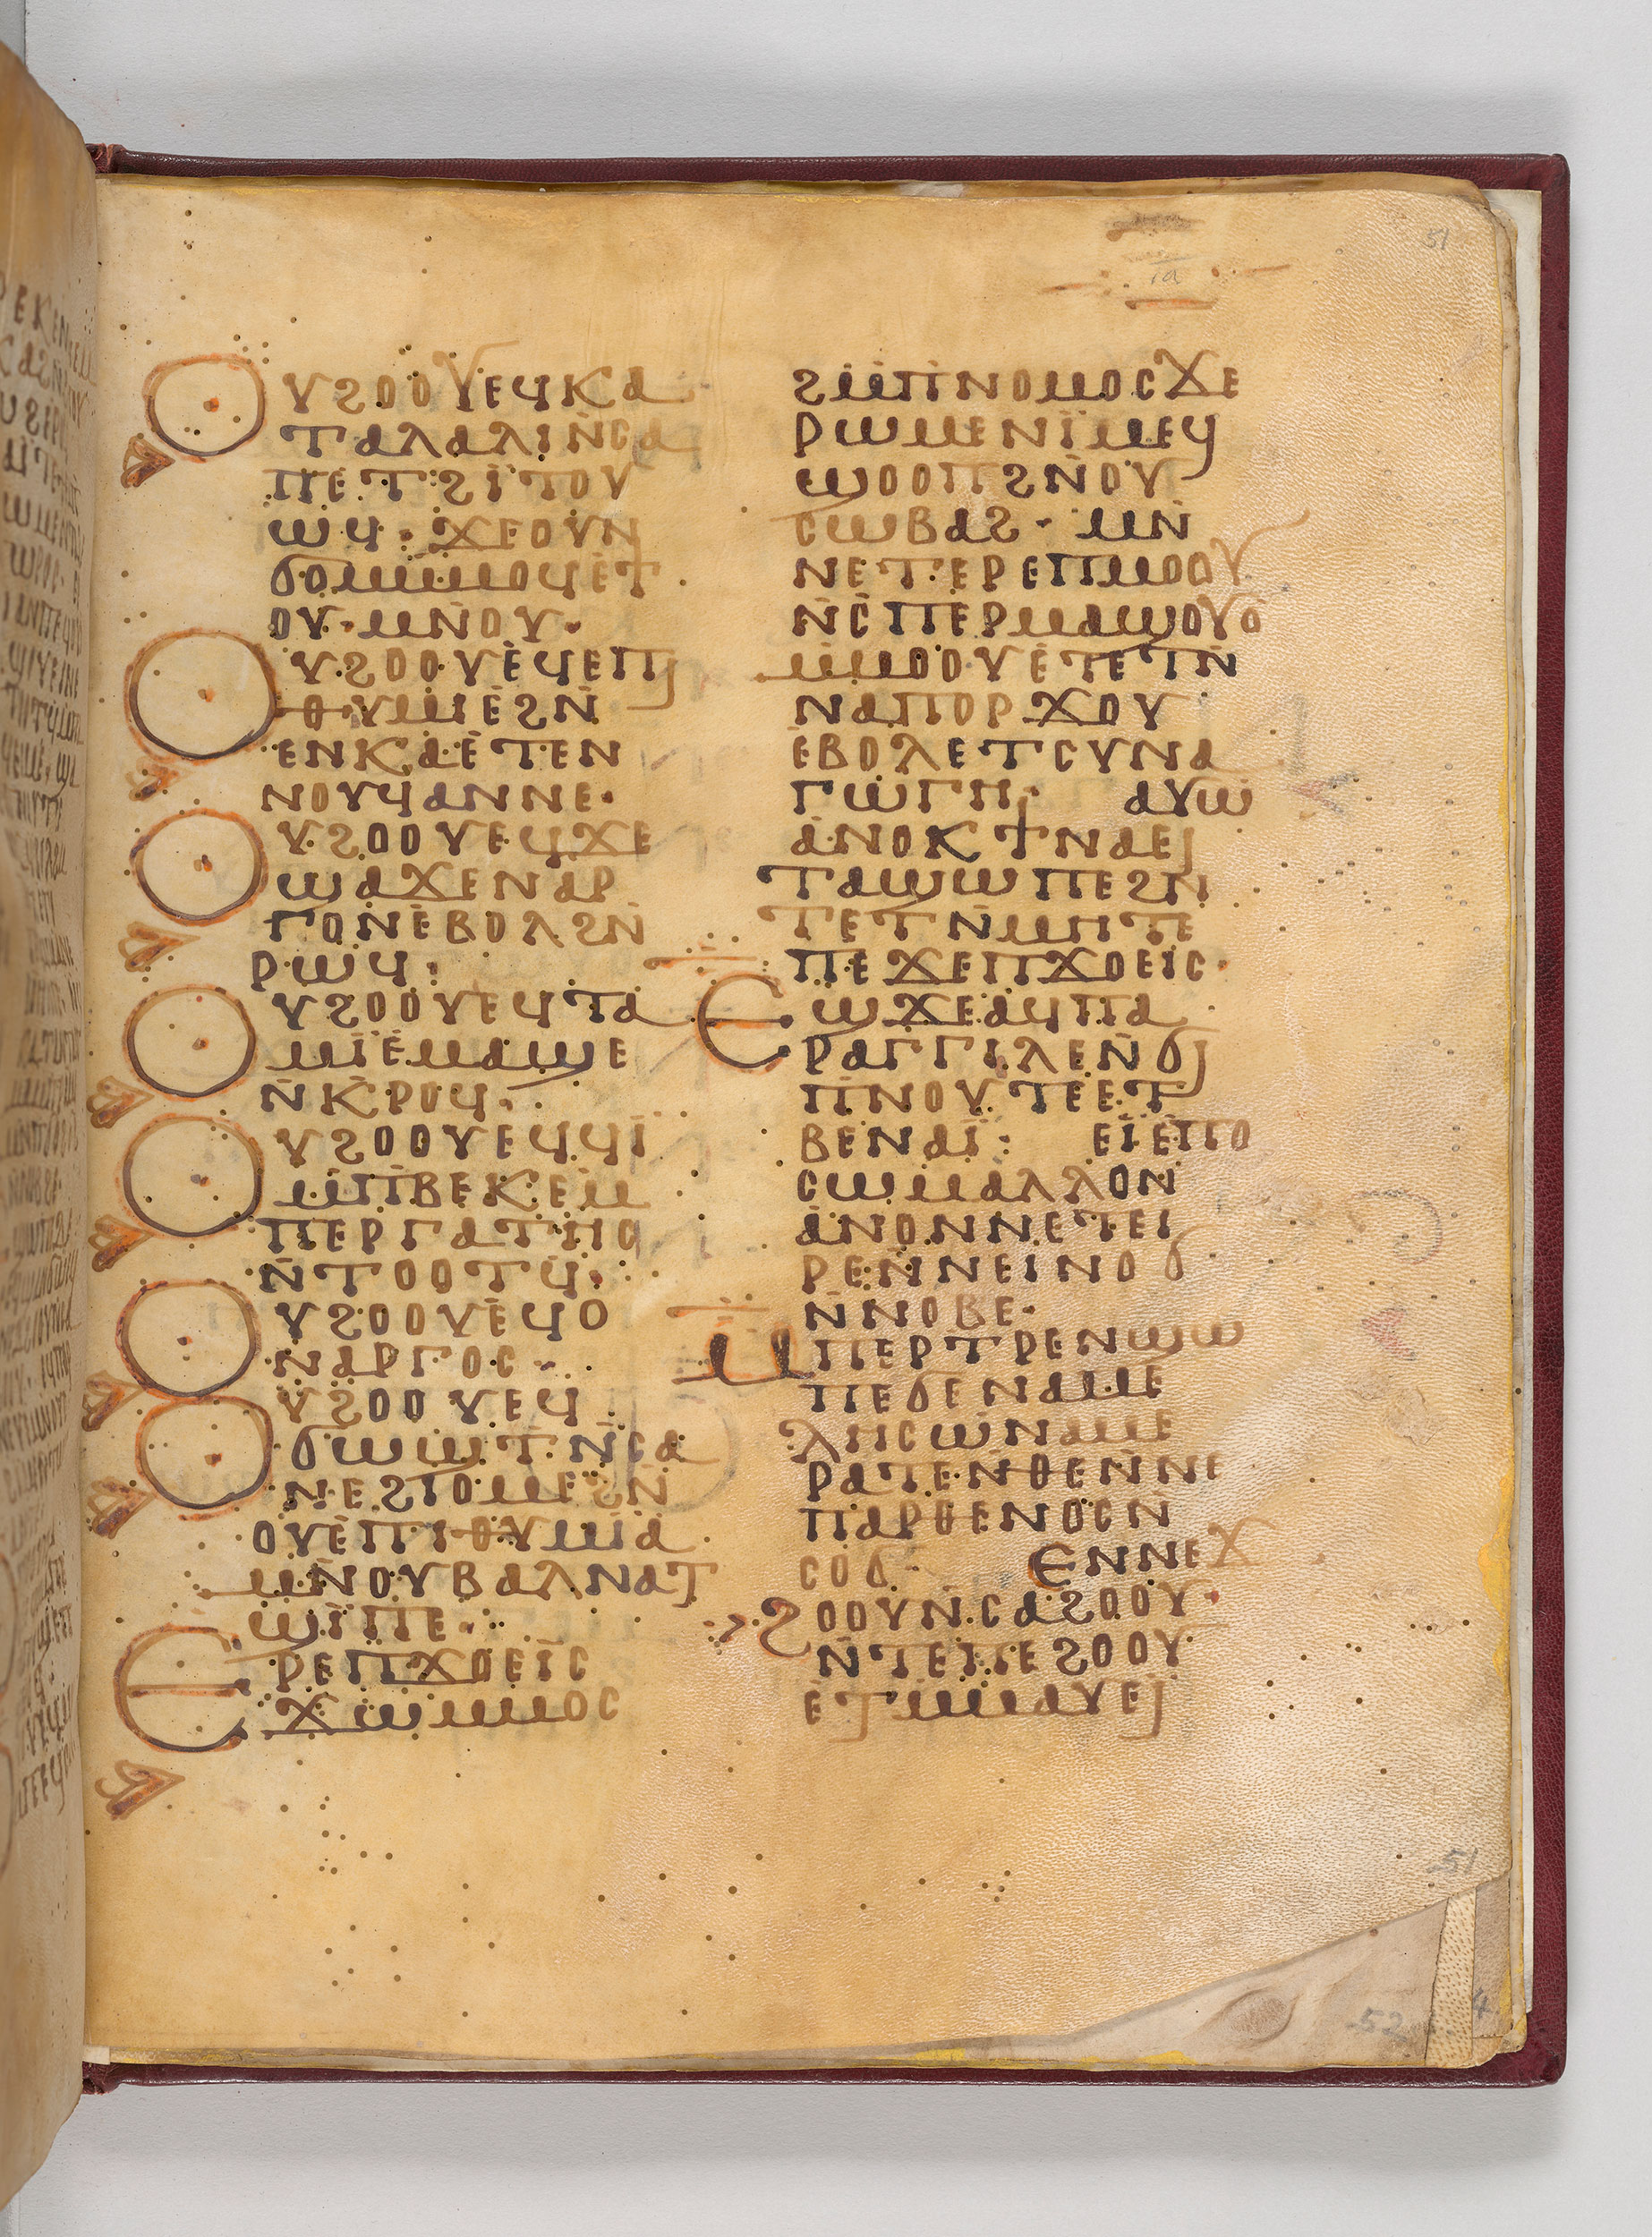 51
ⲓⲁ
ⲟⲩϩⲟⲟⲩⲉϥⲕⲁ
ⲧⲁⲗⲁⲗⲓⲛ̇ⲥⲁ
ⲡⲉⲧϩⲓⲧⲟⲩ
ⲱϥ· ϫⲉⲟⲩⲛ
ϭⲟⲙⲙ̇ⲙⲟϥⲉ̇ⲧ
ⲟⲩ·ⲙⲛ̇ⲟⲩ·
ⲟⲩϩⲟⲟⲩⲉ̇ϥⲉⲡⲓ
ⲑⲩⲙⲓⲉ̇ϩⲛ̇
ⲉⲛⲕⲁⲉ̇ⲧⲉⲛ
ⲛⲟⲩϥⲁⲛⲛⲉ·
ⲟⲩϩⲟⲟⲩⲉϥϫⲉ
ϣⲁϫⲉⲛⲁⲣ
ⲅⲟⲛⲉ̇ⲃⲟⲗϩⲛ̇
ⲣⲱϥ:
ⲟⲩϩⲟⲟⲩⲉϥⲧⲁ
ⲙⲓⲉ̇ⲙⲁϣⲉ
ⲛ̇ⲕⲣⲟϥ·
ⲟⲩϩⲟⲟⲩⲉϥϥⲓ
ⲙ̇ⲡⲃⲉⲕⲉⲙ
ⲡⲉⲣⲅⲁⲧⲏⲥ
ⲛ̇ⲧⲟⲟⲧϥ̇·
ⲟⲩϩⲟⲟⲩⲉ̇ϥⲟ
ⲛⲁⲣⲅⲟⲥ·
ⲟⲩϩⲟⲟⲩⲉϥ
ϭⲱϣⲧⲛ̇ⲥⲁ
ⲛⲉϩⲓⲟⲙⲉϩⲛ̇
ⲟⲩⲉ̇ⲡⲓⲑⲩⲙⲓⲁ
ⲙⲛ̇ⲟⲩⲃⲁⲗⲛⲁⲧ
ϣⲓⲡⲉ·
ⲉⲣⲉⲡϫⲟⲉⲓⲥ
ϫⲱⲙⲙⲟⲥ
ϩⲙ̇ⲡⲛⲟⲙⲟⲥϫⲉ
ⲣⲱⲙⲉⲛⲓⲙⲉϥ
ϣⲟⲟⲡϩⲛ̇ⲟⲩ
ⲥⲱⲃⲁϩ· ⲙⲛ̇
ⲛⲉⲧⲉⲣⲉⲡⲙⲟⲟⲩ
ⲛ̇ⲥⲡⲉⲣⲙⲁϣⲟⲩⲟ
ⲙ̇ⲙⲟⲟⲩⲉ̇ⲧⲉⲧⲛ̇
ⲛⲁⲡⲟⲣϫⲟⲩ
ⲉ̇ⲃⲟⲗⲉⲧⲥⲩⲛⲁ
ⲅⲱⲅⲏ· ⲁⲩⲱ
ⲁⲛⲟⲕϯⲛⲁⲉⲓ
ⲧⲁϣⲱⲡⲉϩⲛ̇
ⲧⲉⲧⲛ̇ⲙⲏⲧⲉ
ⲡⲉϫⲉⲡϫⲟⲉⲓⲥ·
ⲉϣϫⲉⲁϥⲡⲁ
ⲣⲁⲅⲅⲓⲗⲉⲛ̇ϭⲓ
ⲡⲛⲟⲩⲧⲉⲉⲧ
ⲃⲉⲛⲁⲓ̈: ⲉⲓⲉ̇ⲡⲟ
ⲥⲱⲙⲁⲗⲗⲟⲛ
ⲁⲛⲟⲛⲛⲉⲧⲉⲓ
ⲣⲉⲛ̇ⲛⲉⲓⲛⲟϭ
ⲛ̇ⲛⲟⲃⲉ·
ⲙⲡⲉⲣⲧⲣⲉⲛϣⲱ
ⲡⲉϭⲉⲛⲁⲙⲉ
ⲗⲏⲥⲱⲛⲁⲙⲉ
ⲣⲁⲧⲉⲛⲑⲉⲛ̇ⲛⲉ
ⲡⲁⲣⲑⲉⲛⲟⲥⲛ̇
ⲥⲟϭ· ⲉⲛⲛⲉϫ
ϩⲟⲟⲩⲛ̇ⲥⲁϩⲟⲟⲩ·
ⲛ̇ⲧⲉⲡⲉϩⲟⲟⲩ
ⲉ̇ⲧⲙⲙⲁⲩⲉⲓ
51
52
4